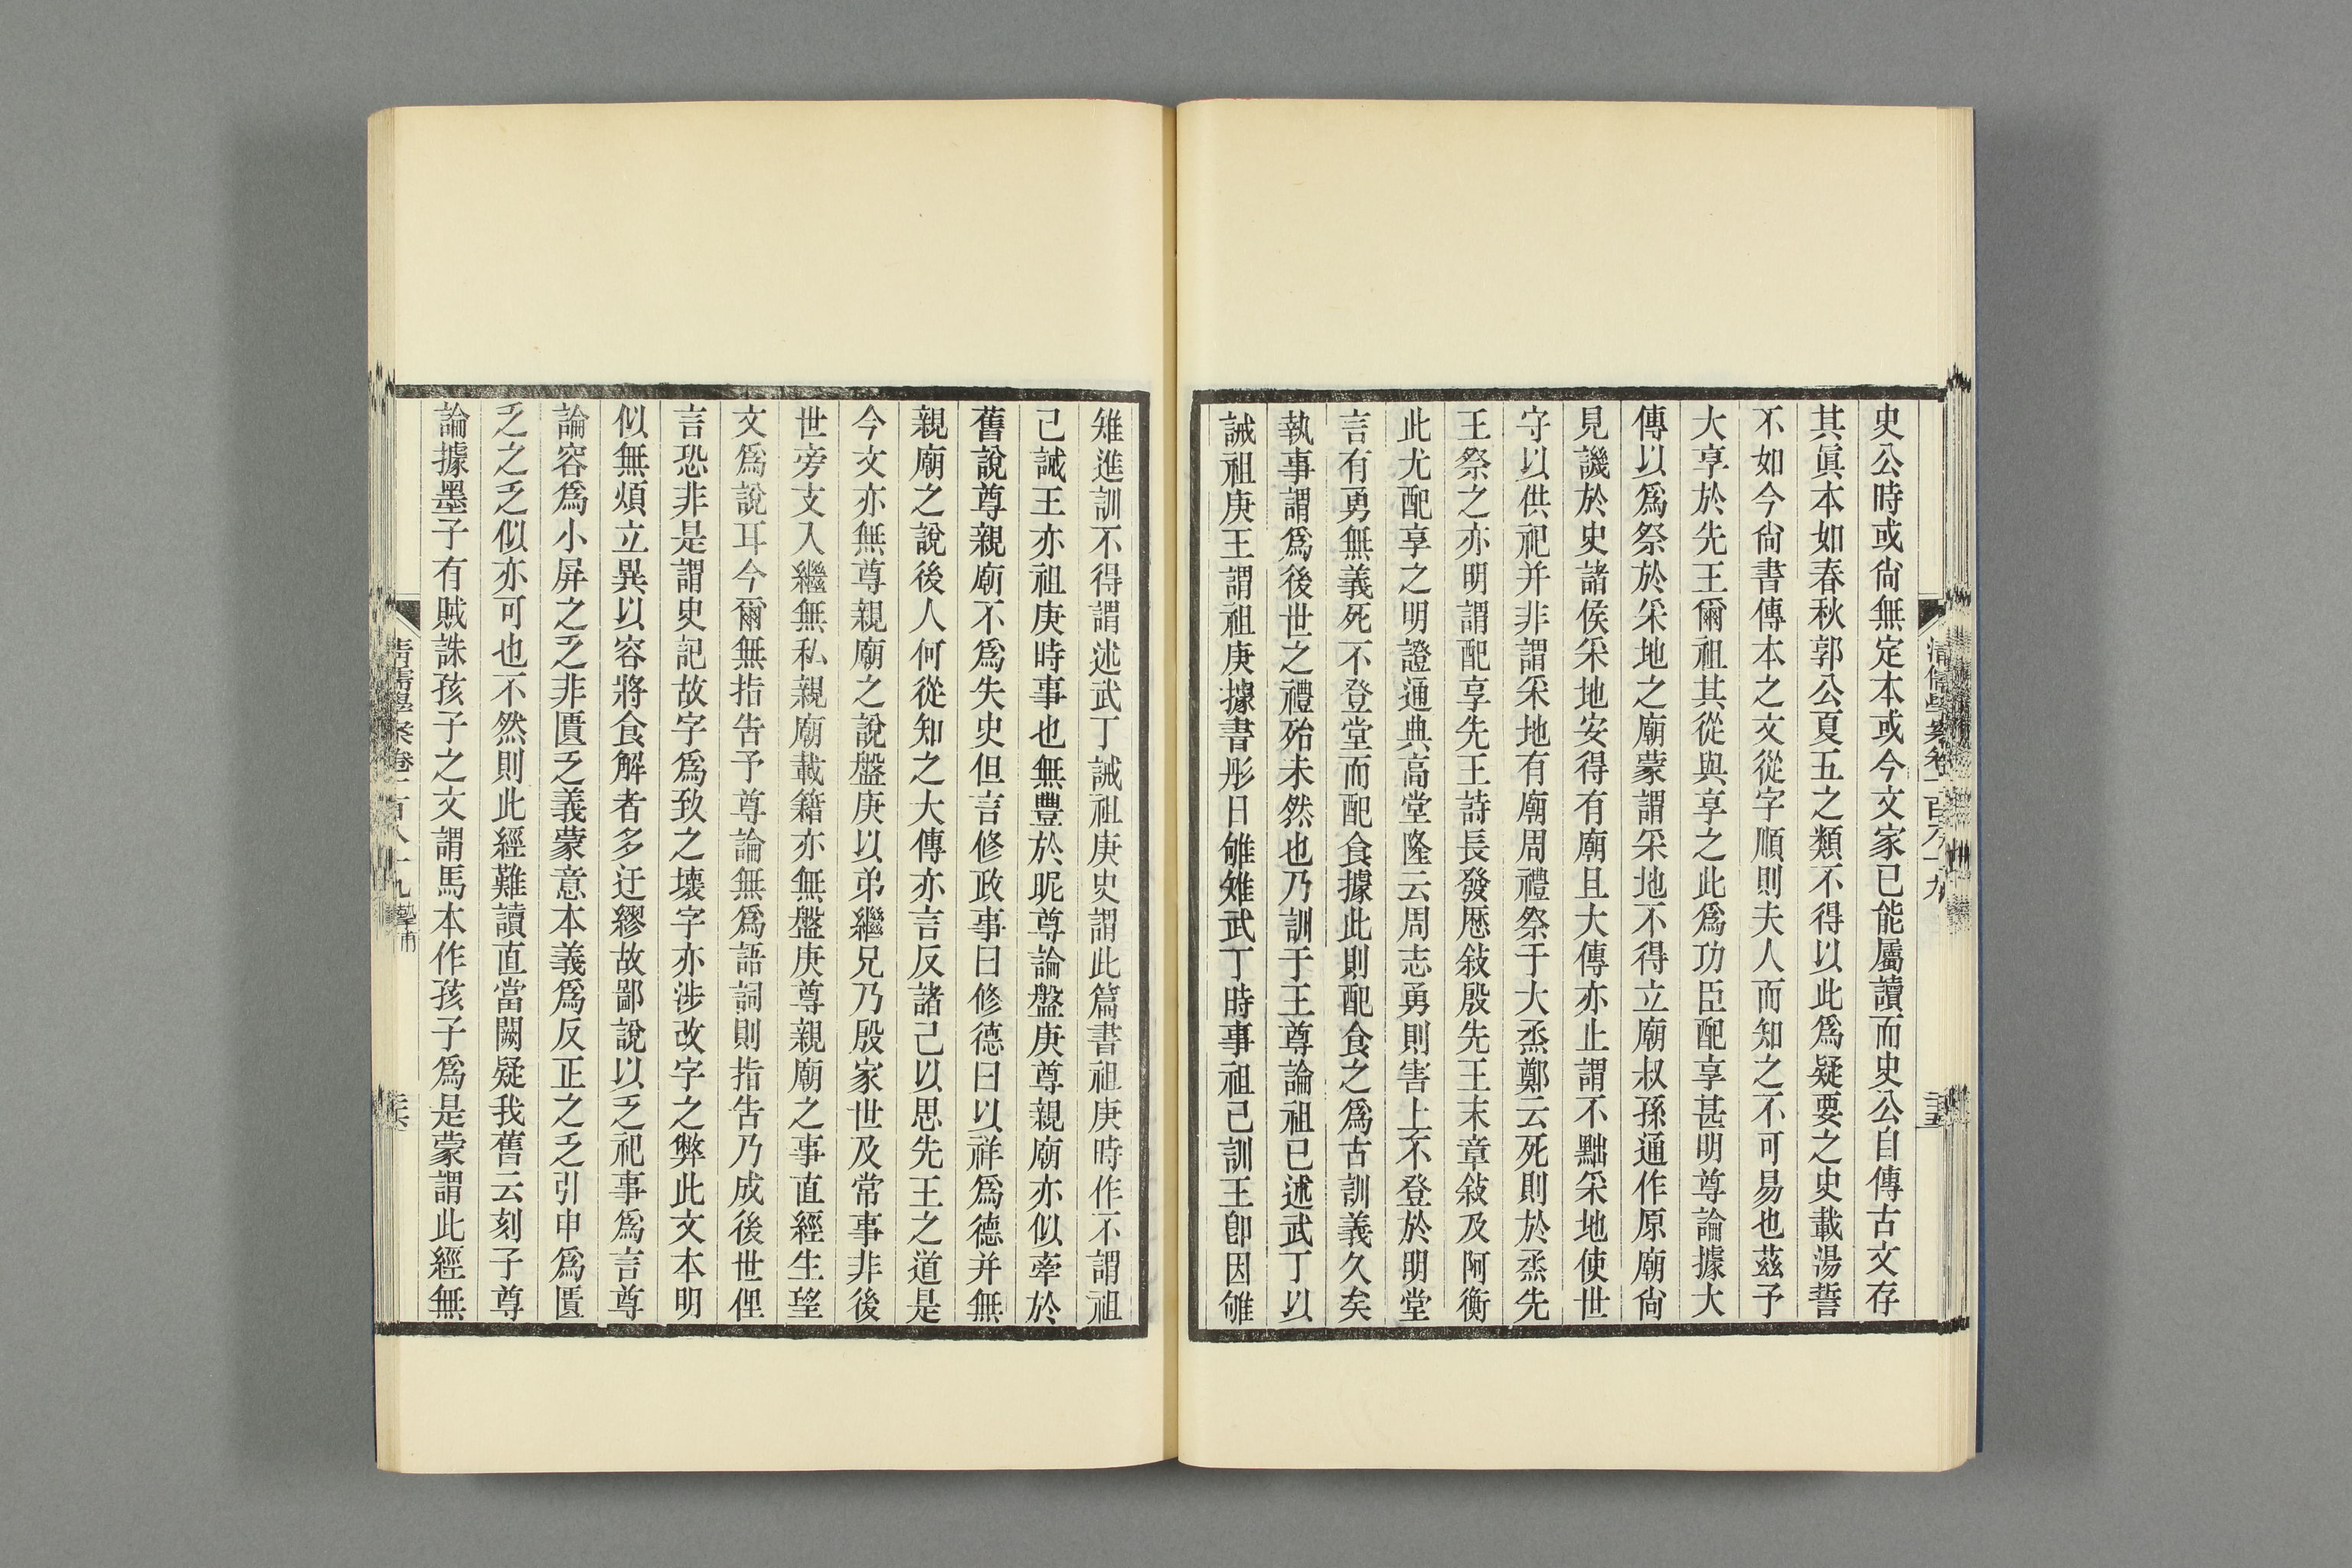 史公時或尙無定本或今文家已能屬讀而史公自傳古文存
其眞本如春秋郭公夏五之類不得以此爲疑要之史載湯誓
不如今尙書傳本之文從字順則夫人而知之不可易也茲予
大享於先王爾祖其從與享之此爲功臣配享甚明尊論據大
傳以爲祭於采地之廟蒙謂采地不得立廟叔孫通作原廟尙
見譏於史諸侯采地安得有廟且大傳亦止謂不黜采地使世
守以供祀并非謂采地有廟周禮祭于大烝鄭云死則於烝先
王祭之亦明謂配享先王詩長發歷敍殷先王末章敍及阿衡
此尤配享之明證通典高堂隆云周志勇則害上不登於明堂
言有勇無義死不登堂而配食據此則配食之爲古訓義久矣
執事謂爲後世之禮殆未然也乃訓于王尊論祖已述武丁以
誡祖庚王謂祖庚據書彤日雊雉武丁時事祖己訓王卽因雊
雉進訓不得謂述武丁誡祖庚史謂此篇書祖庚時作不謂祖
己誡王亦祖庚時事也無豐於昵尊論盤庚尊親廟亦似牽於
舊說尊親廟不爲失史但言修政事曰修德曰以祥爲德并無
親廟之說後人何從知之大傳亦言反諸己以思先王之道是
今文亦無尊親廟之說盤庚以弟繼兄乃殷家世及常事非後
世旁支入繼無私親廟載籍亦無盤庚尊親廟之事直經生望
文爲說耳今爾無指告予尊論無爲語詞則指告乃成後世俚
言恐非是謂史記故字爲致之壞字亦涉改字之弊此文本明
似無煩立異以容將食解者多迂繆故鄙說以乏祀事爲言尊
論容爲小屏之乏非匱乏義蒙意本義爲反正之乏引申爲匱
乏之乏似亦可也不然則此經難讀直當闕疑我舊云刻子尊
論據墨子有賊誅孩子之文謂馬本作孩子爲是蒙謂此經無
清儒學案卷一百八十九
三十五
清儒學案卷一百八十九 摯甫
三十六